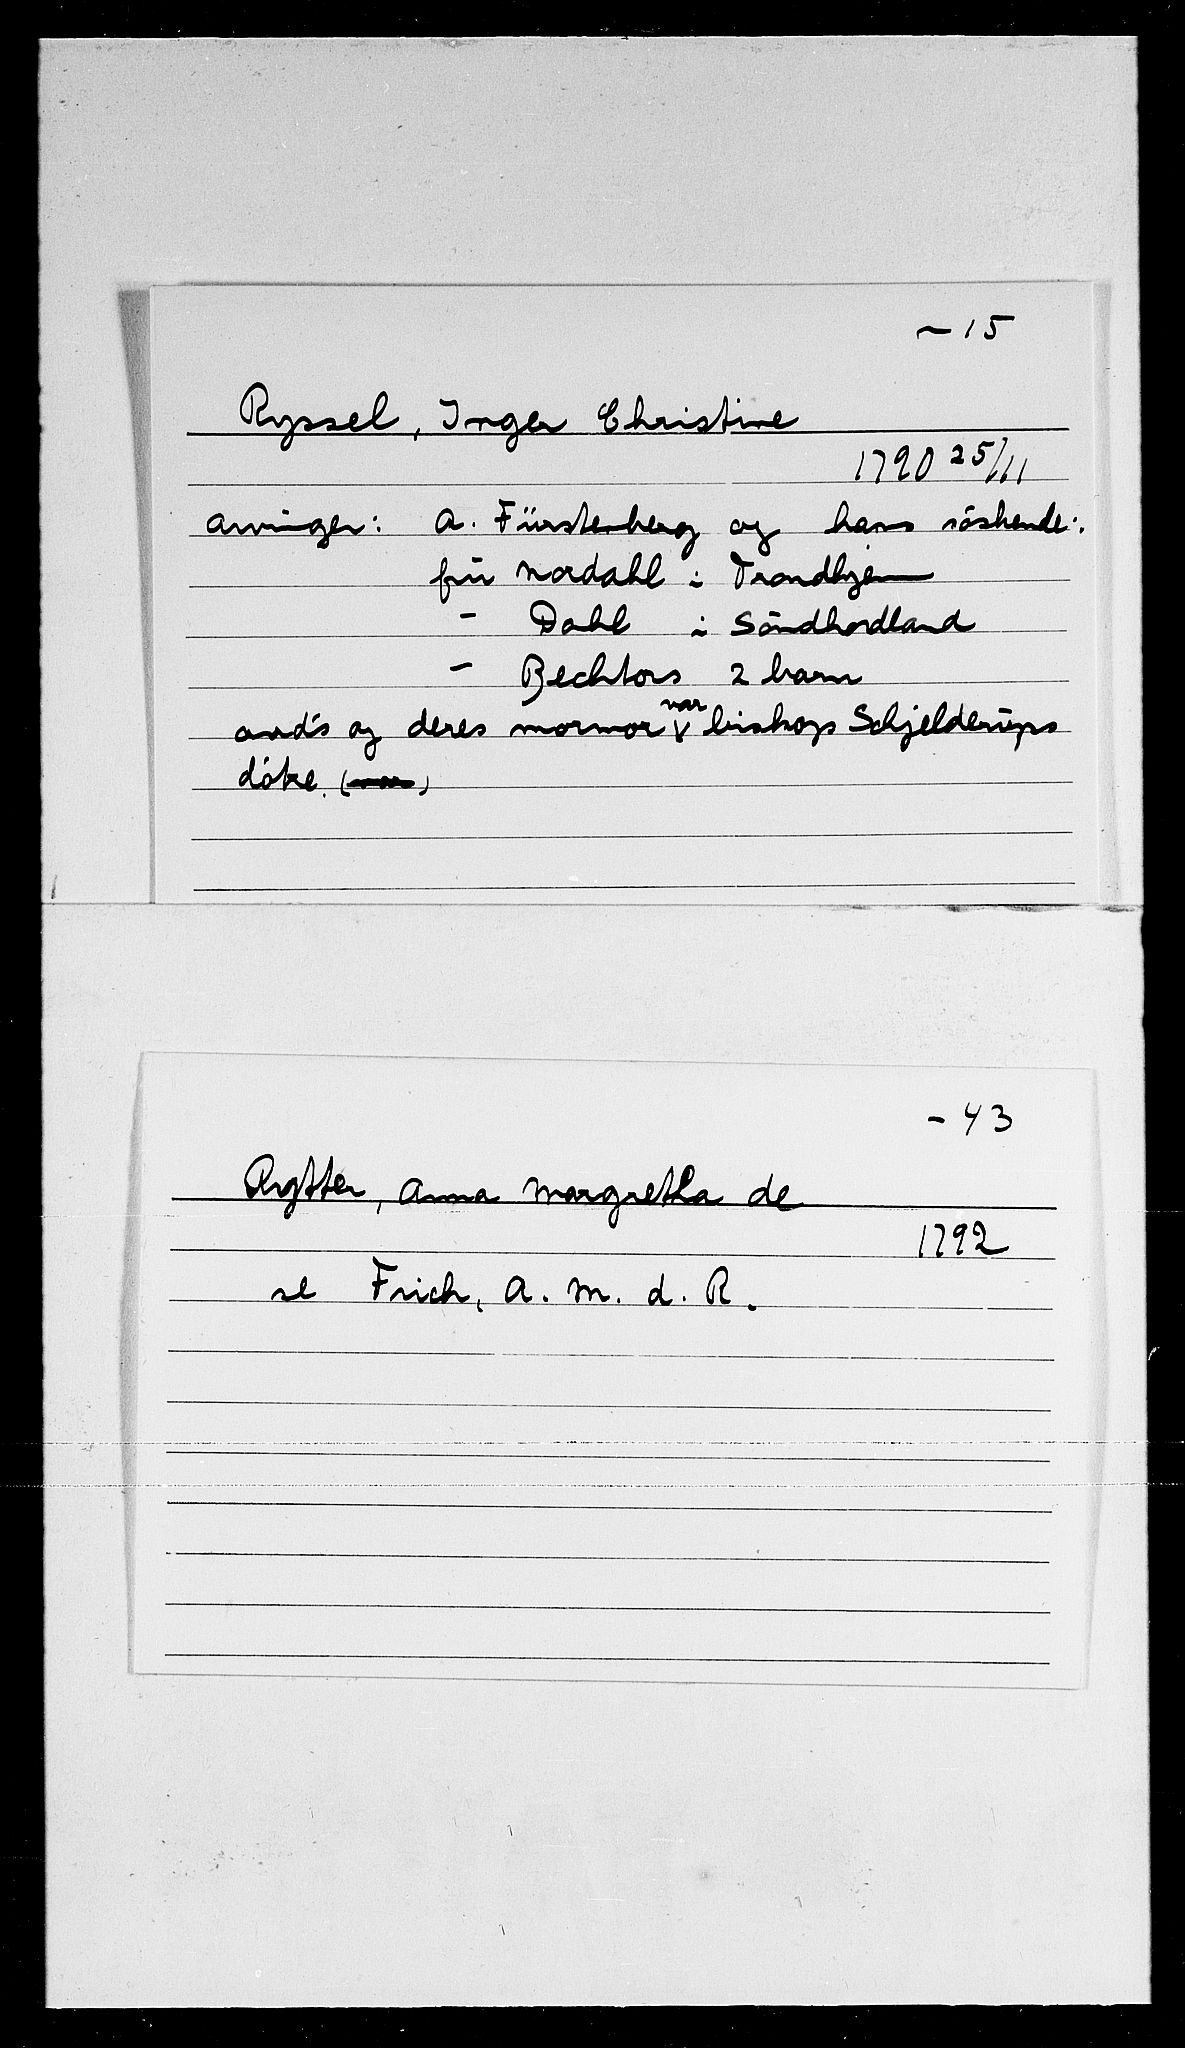 ~ 15
Ryssel, Inger Christine
1790 25/11
Arvinger: A. Fürstenberg og hans söskende:
frü Nordahl i Trondhjem
- Dahl i Söndhordland
- Bechtors 2 barn
avd's og deres mormor var bishops Schjelderüps
döke.
- 43
Rytter, Anna Margretha de
1792
se Frich, A. M. d. R.